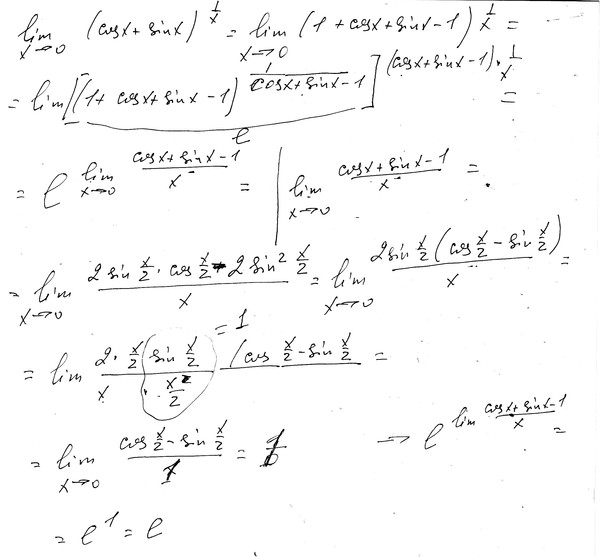 lim x→0 (cosx + sinx)^(1/x) = lim x→0 (1 + cosx + sinx - 1)^(1/x) =
= lim [(1 + cosx + sinx - 1)^(1/(cosx + sinx - 1))]^((cosx + sinx - 1) · 1/x) =
e
= e^(lim x→0 (cosx + sinx - 1)/x) = | lim x→0 (cosx + sinx - 1)/x =
= lim x→0 (2 sin x/2 · cos x/2 - 2 sin² x/2)/x = lim x→0 (2 sin x/2 (cos x/2 - sin x/2))/x =
= 1
= lim (2 · x/2 sin x/2 (cos x/2 - sin x/2)/(x · x/2) =
= lim x→0 (cos x/2 - sin x/2)/1 = 1 → e^(lim (cosx + sinx - 1)/x) =
= e^1 = e